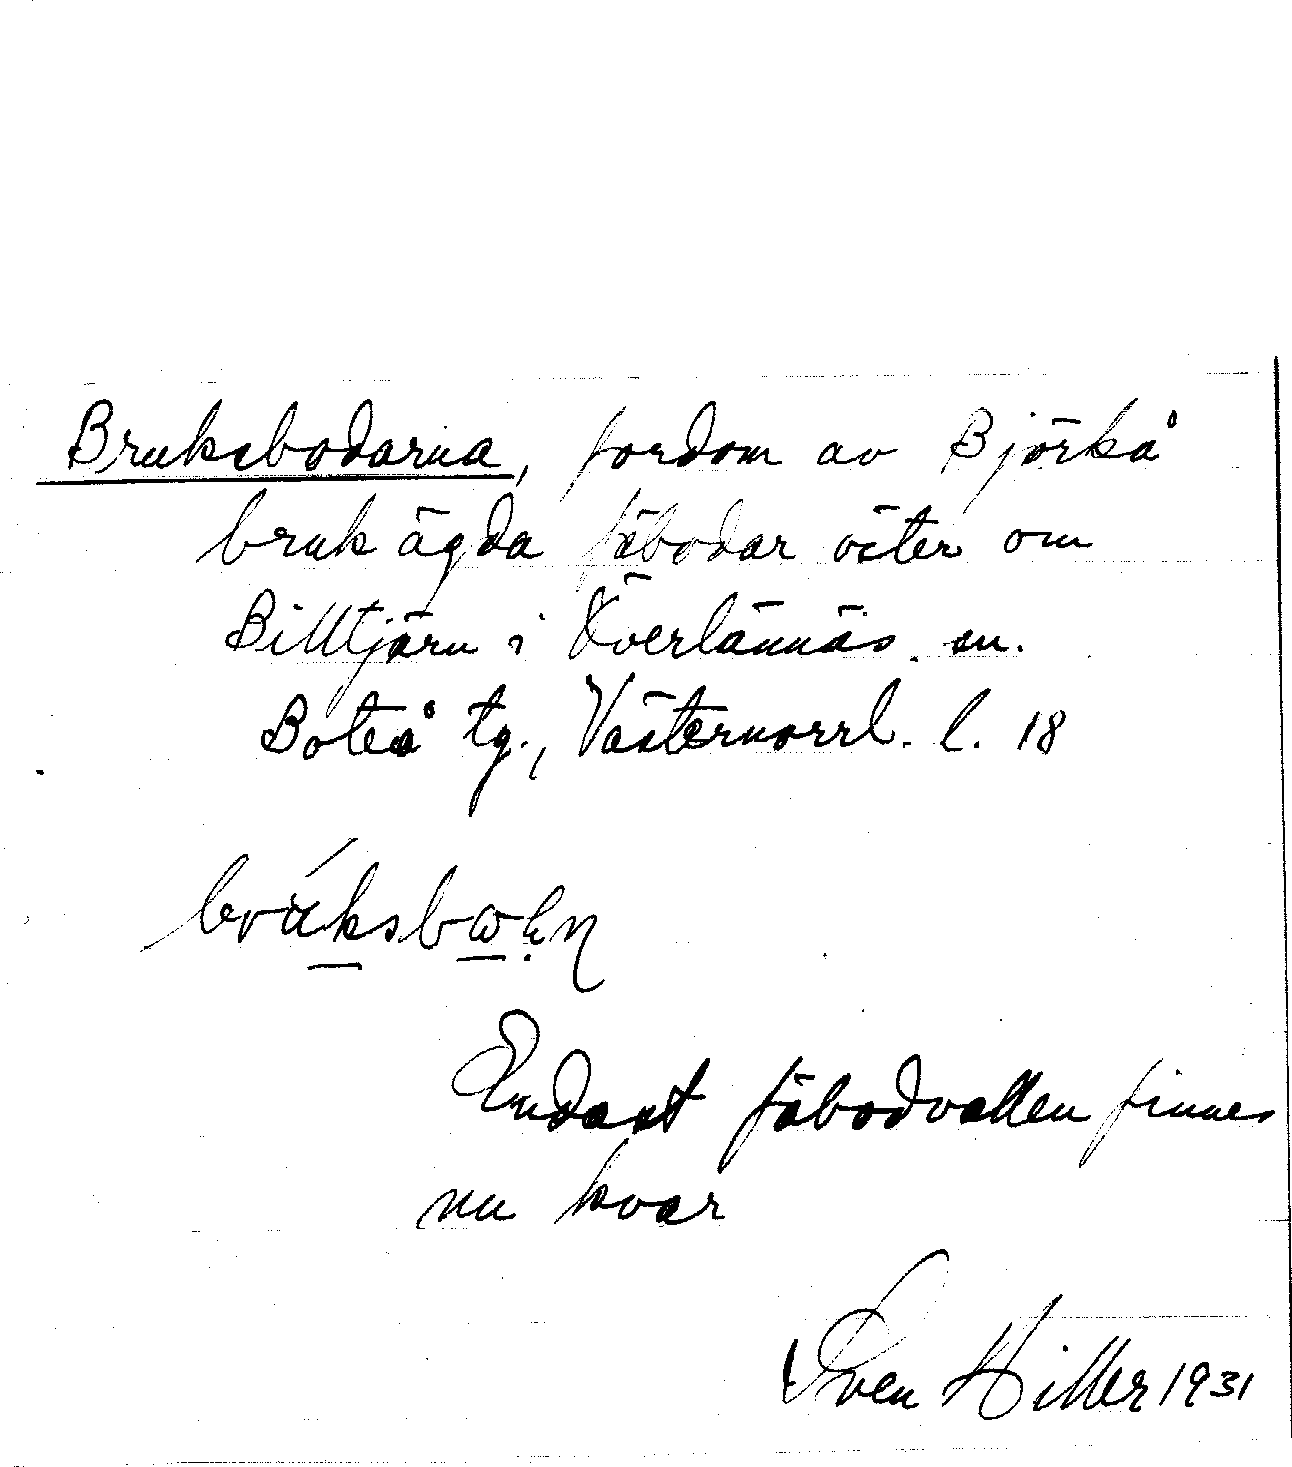 Bruksbodarna, fordom av Björkå
bruk ägda fäbodar öster om
Billtjärn i Överlännäs sn.
Boteå tg., Västernorrl. l. 18
Endast fäbodvallen finnes
nu kvar
Sven Hiller 1931